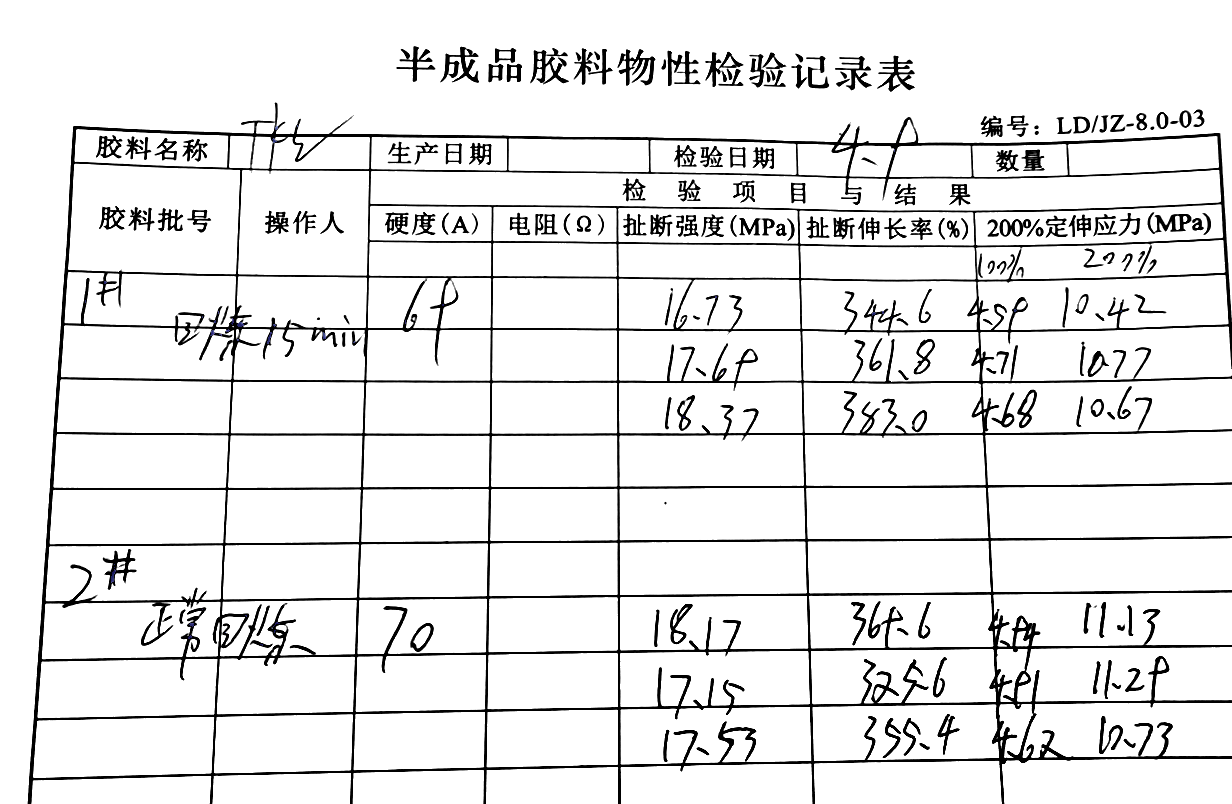 半成品胶料物性检验记录表
编号：LD/JZ-8.0-03
胶料名称 生产日期 检验日期 4.9 数量
胶料批号 操作人 检验项目与结果
硬度(A) 电阻(Ω) 扯断强度(MPa) 扯断伸长率(%) 200%定伸应力(MPa)
100% 200%
1# 69 16.73 344.6 4.59 10.42
回炼15min
17.69 361.8 4.71 10.77
18.37 383.0 4.68 10.67
2#
正常回炼 70 18.17 369.6 4.94 11.13
17.15 325.6 4.91 11.29
17.53 355.4 4.62 10.73